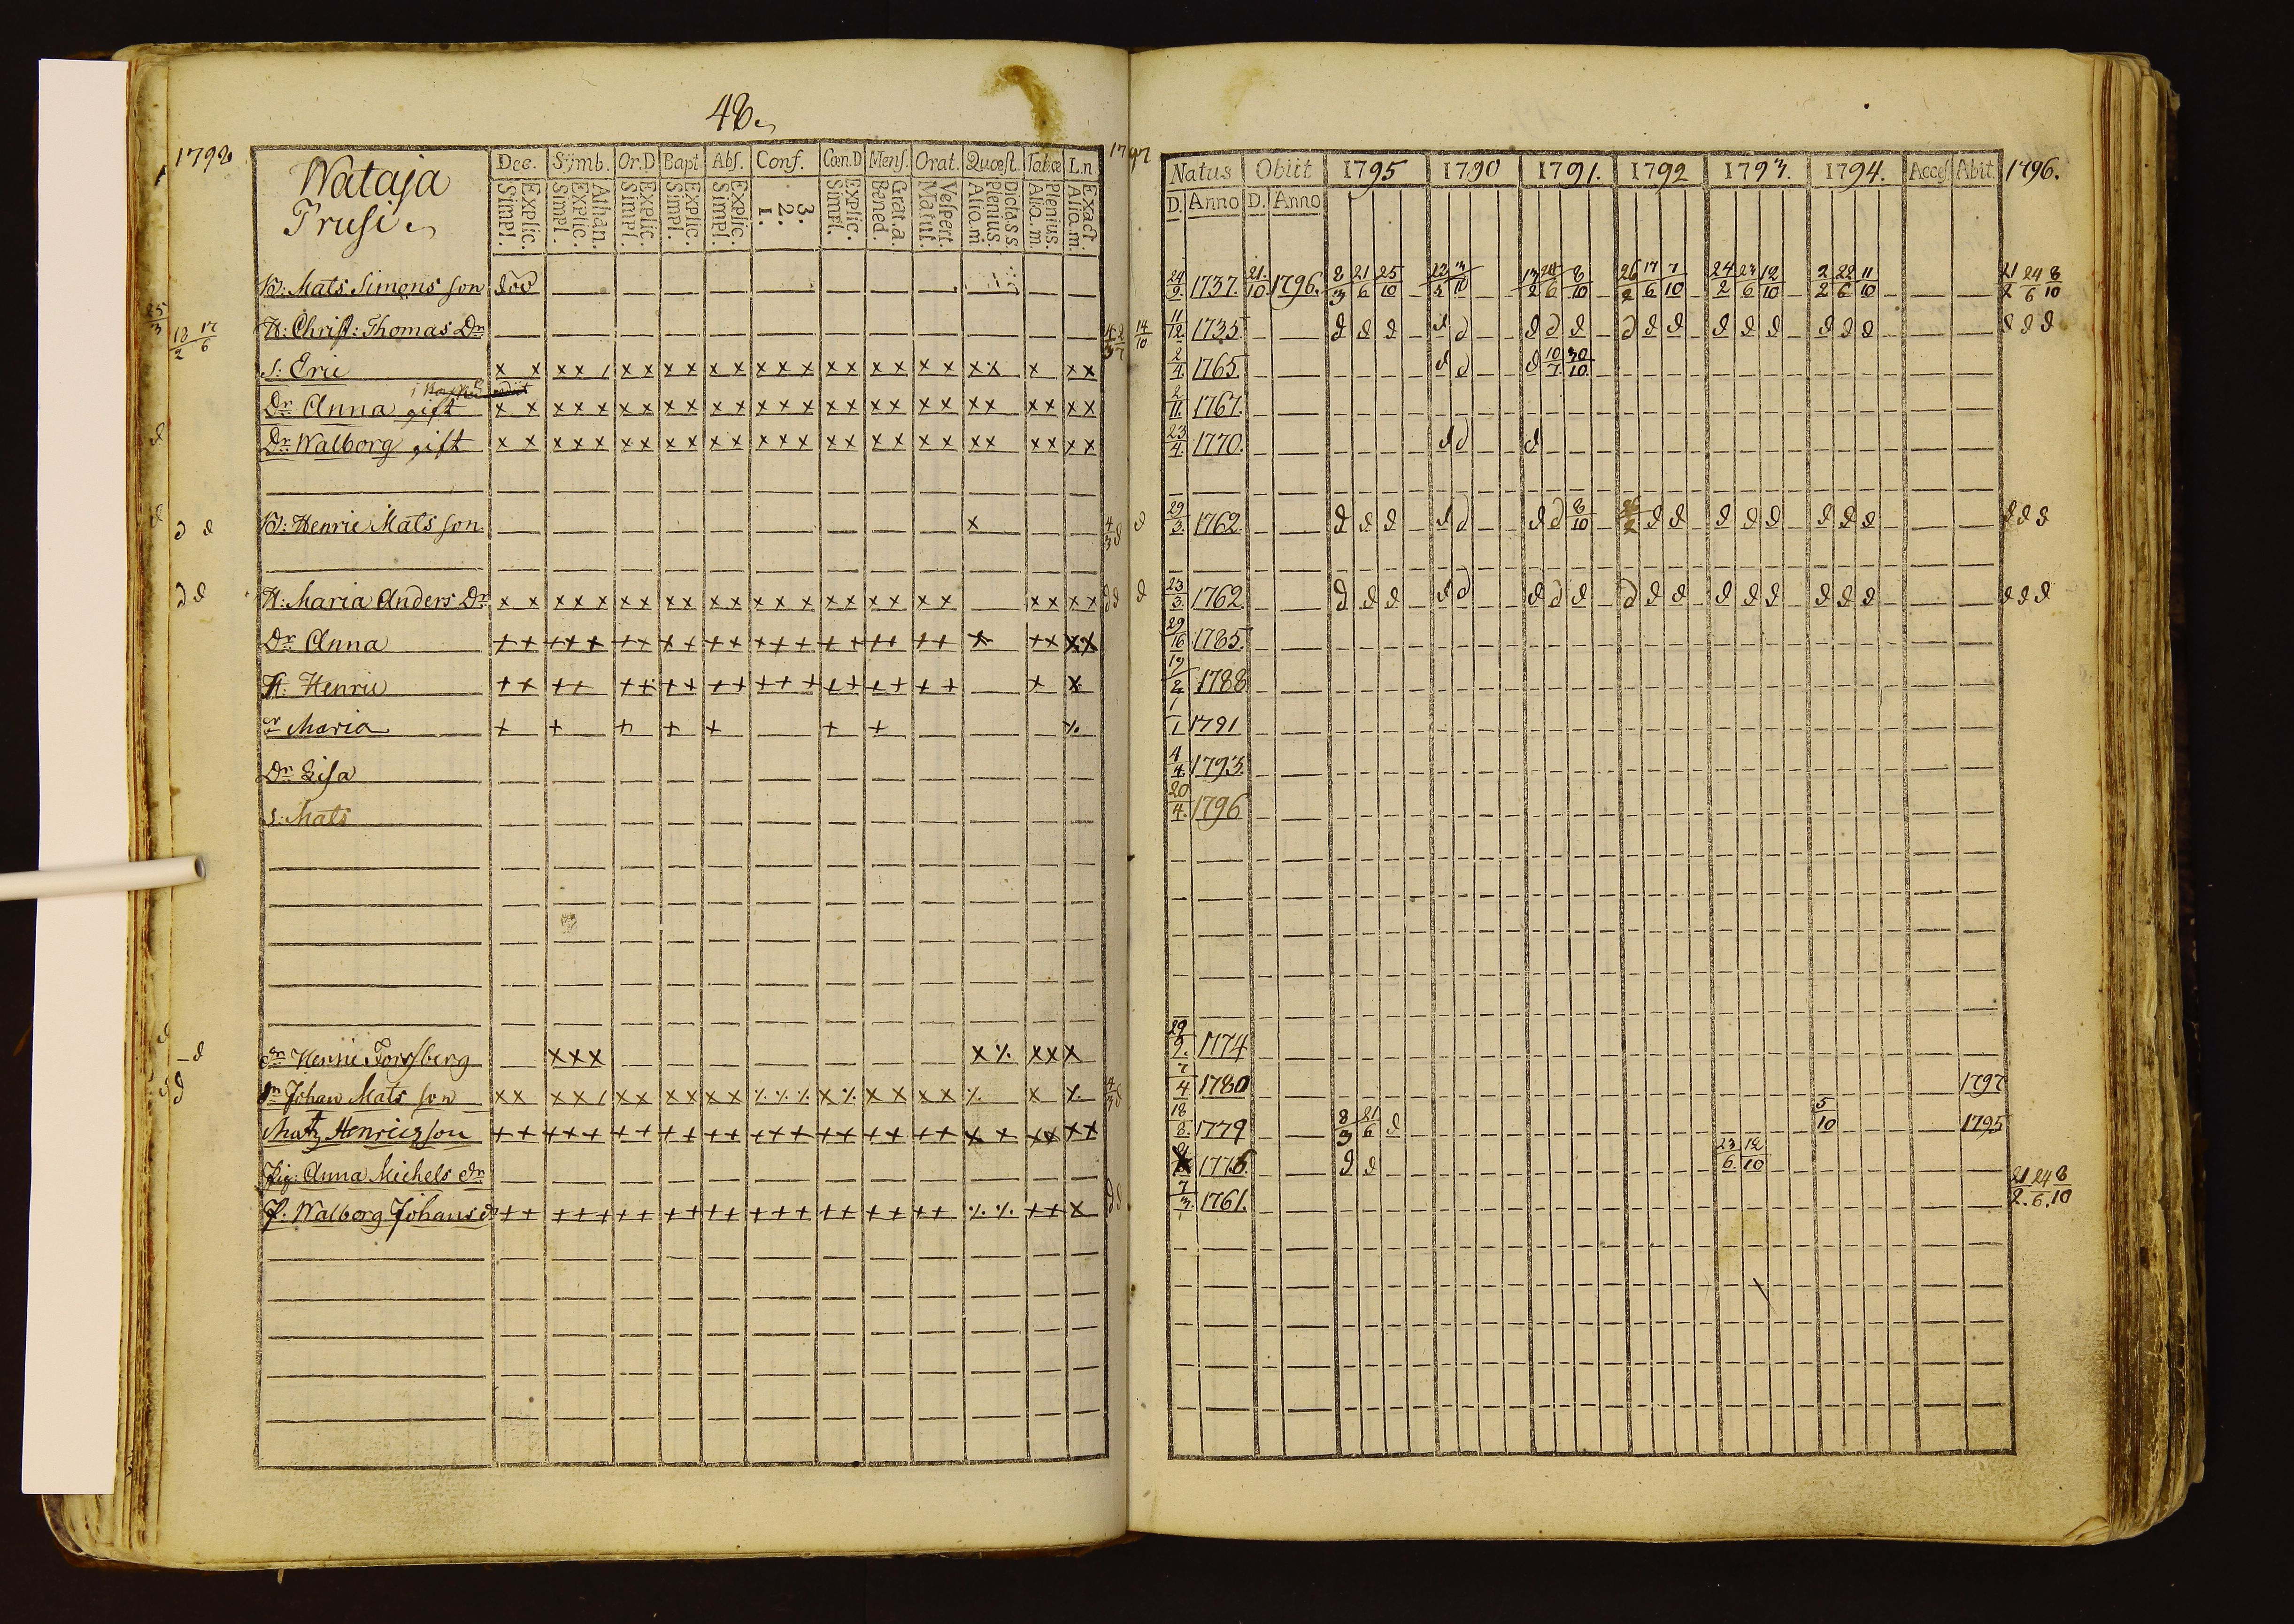 48.
1792
Wataja
Trusi
Dec. Symb. Or.D Bapt Abs. Conf. Cœn.D Mens. Orat. Quæst. Tab.œ L.n
Explic. Simpl. Athan. Explic. Simpl. Explic. Simpl. Explic. Simpl. Explic. Simpl. 3. 2. 1. Explic. Simpl. Grat. a. Bened. Vespert. Matut. Dicta s.s. Plenius. Alio. m. Plenius. Alio. m. Exact. Alio. m.
1797
Natus Obiit 1795 1790 1791. 1792 1793. 1794. Acces. Abit. 1796.
D. Anno D. Anno
B: Mats Simons son 24/9. 1737. 21./10 1796. 8/3 21/6 25/10 26/2 17/6 7/10 24/2 23/6 12/10 2/2 22/6 11/10 21/2 24/6 8/10
H: Christ: Thomas Dr 11/12 1735 d d d d d d d d d d d d d d d d d d d d
S: Eric x x x x / x x x x x x x x x x x x x x x x x x x x 2/4 1765. d d d 10/7 30/10
Dr Anna gift x x x x x x x x x x x x x x x x x x x x x x x x x 2/11. 1767.
Dr Walborg gift x x x x x x x x x x x x x x x x x x x x x x x x x 23/4. 1770. d d d
B: Henric Mats son. x 29/3. 1762. d d d d d d d 8/10 d d d d d d d d d d d
H: Maria Anders Dr x x x x x x x x x x x x x x x x x x x x x x 23/3. 1762 d d d d d d d d d d d d d d d d d d d d
Dr Anna + + + + + + + + + + + + + + + + + + + + x + x x x 29/10 1785.
Henric + + + + + + + + + + + + + + + + + + + x x 19/2 1788
Maria + + + + + + + ٪ 1/1 1791
Dr Lisa 4/4 1793.
S: Mats 20/4. 1796
dr Henric Forsberg x x x x ٪ x x x 29/9. 1774
dr Johan Mats son x x x x / x x x x x x ٪ ٪ ٪ x ٪ x x x x ٪ x ٪ 7/4 1780 1797
Matz Henricsson + + + + + + + + + + + + + + + + + + + + x x x x x x 18/8. 1779 8/3 21/6 d 5/10 1795
Pig: Anna Michels dr 1776. d d 23/6. 12/10
P. Walborg Johans d + + + + + + + + + + + + + + + + + + + + ٪ ٪ + + x 7/3. 1761. 21/2. 24/6. 8/10